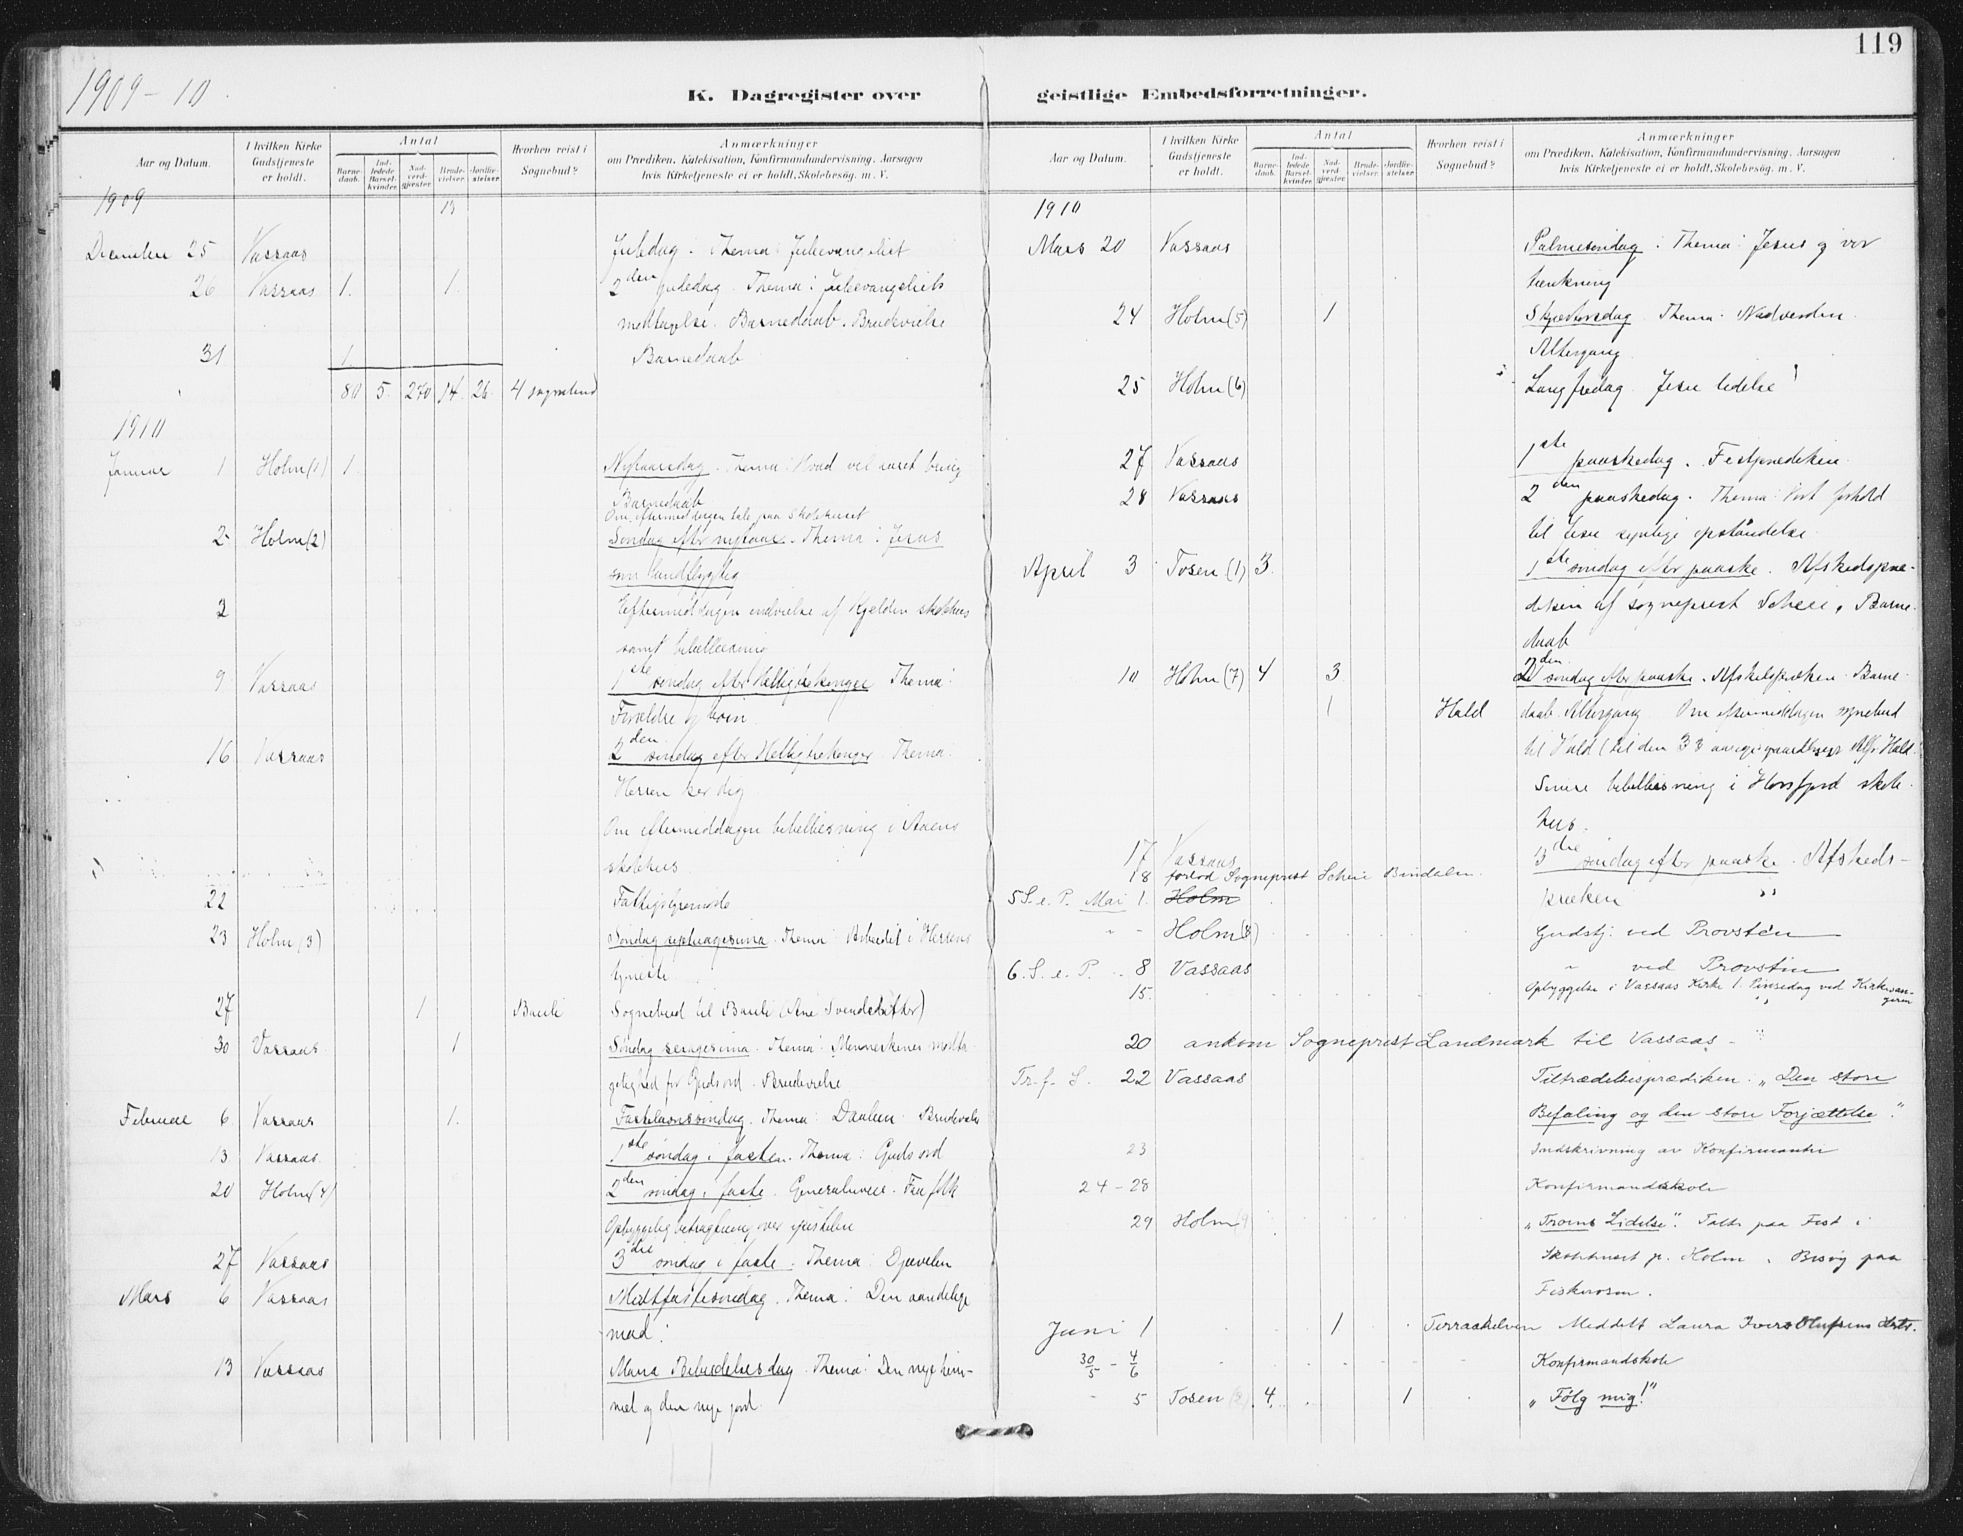 119
1909-10.
K. Dagregister over geistlige Embedsforretninger.
Aar og Datum.
I hvilken Kirke Gudstjeneste er holdt.
Antal
Barnedaab.
Indledede Barselkvinder.
Nadverdgjæster.
Brudevielser.
Jordfæstelser.
Hvorhen reist i Sognebud?
Anmærkninger
om Prædiken, Katekisation, Konfirmandundervisning. Aarsagen
hvis Kirketjeneste ei er holdt, Skolebesøg. m. V.
1909 13
December 25 Vassaas Juledag. Thema: Juleevangeliet
26 Vassaas 1. 1. 2den juledag. Thema: Juleevangeliets
modtagelse. Barnedaab. Brudevielse
31 1 Barnedaab
80 5. 270 14. 26. 4 sognebud
1910
Januar 1 Holm (1) 1. Nytaarsdag. Thema: Hvad vil aaret bring
Barnedaab
Om eftermiddagen tale paa Skolehuset
2 Holm (2) Søndag efter nytaar. Thema: Jesus
som landflygtig
2 Eftermiddagen indvielse af Kjelden skolehus
samt bibellæsning
9 Vassaas 1ste søndag efter Helligtrekonger Thema:
Forældre og børn
16 Vassaas 2den søndag efter Helligtrekonger. Thema:
Herren ser dig
Om eftermiddagen bibellæsning i Aaens
skolehus
22 Fattigstyremøde
23 Holm (3) Søndag septuagesima. Thema: Arbeidet i Herrens
tjeneste
27 1 Sognebud til
30 Vassaas 1 Søndag sexagesima. Thema: Menneskenes modta-
gelighed for Guds ord. Brudevielse
Februar 6 Vassaas 1. Fastelavnssøndag. Thema: Daaben. Brudevielse
13 Vassaas 1ste søndag i fasten. Thema: Guds ord
20 Holm (4) 2den søndag i faste. Faa folk
Opbyggelig betragtning over epistelen
27 Vassaas 3die søndag i faste. Thema: Djævelen
Mars 6 Vassaas Midtfastesøndag. Thema: Den aandelige
mad.
13 Vassaas Maria Bebudelsesdag. Thema: Den nye him-
mel og den nye jord.
Aar og Datum.
I hvilken Kirke Gudstjeneste er holdt.
Antal
Barnedaab.
Indledede Barselkvinder.
Nadverdgjæster.
Brudevielser.
Jordfæstelser.
Hvorhen reist i Sognebud?
Anmærkninger
om Prædiken, Katekisation, Konfirmandundervisning. Aarsagen
hvis Kirketjeneste ei er holdt, Skolebesøg. m. V.
1910
Mars 20 Vassaas Palmesøndag. Thema: Jesus og vor
tænkning
24 Holm (5) 1 Skjærtorsdag. Thema: Nadverden.
Altergang
25 Holm (6) Langfredag. Jesu lidelse
27 Vassaas 1ste paaskedag. Festprædiken.
28 Vassaas 2den paaskedag. Thema: Vort forhold
til Jesu synlige opstandelse.
April 3 Tosen (1) 3. 1ste søndag efter paaske. Afskedspræ-
diken af sogneprest Scheie. Barne-
daab
10 Holm (7) 4 3 2den søndag efter paaske. Barne-
1 Hald daab. Altergang. Om eftermiddagen sognebud
til Hald (til den 33 aarige Hald.
Senere bibellæsning i Horsfjord skole-
hus.
17 Vassaas 3die søndag efter paaske. Afskeds-
18 forlod Sogneprest Scheie Bindalen. præken
5 S. e. P. Mai 1. Holm
" - Holm (8) Gudstj. ved Provsten
6. S. e. P. " 8 Vassaas " ved Provsten
15. Opbyggelse i Vassaas Kirke 1. Pinsedag ved Kirkesan-
geren
20 ankom Sogneprest Landmark til Vassaas.
Tr. f. S. 22 Vassaas Tiltrædelsesprædiken: „Den store
Befaling og den store Forjættelse."
23 Indskrivning av Konfirmander
24-28 Konfirmandskole
29 Holm (9) „Troens Lidelse". Talte paa Fest i
Skolehuset p. Holm. Besøg paa
Fiskerosen.
Juni 1 1 Terraakelven Meddelt Laura
30/5 - 4/6 Konfirmandskole
- 5 Tosen (2) 4. 1 „Følg mig!"